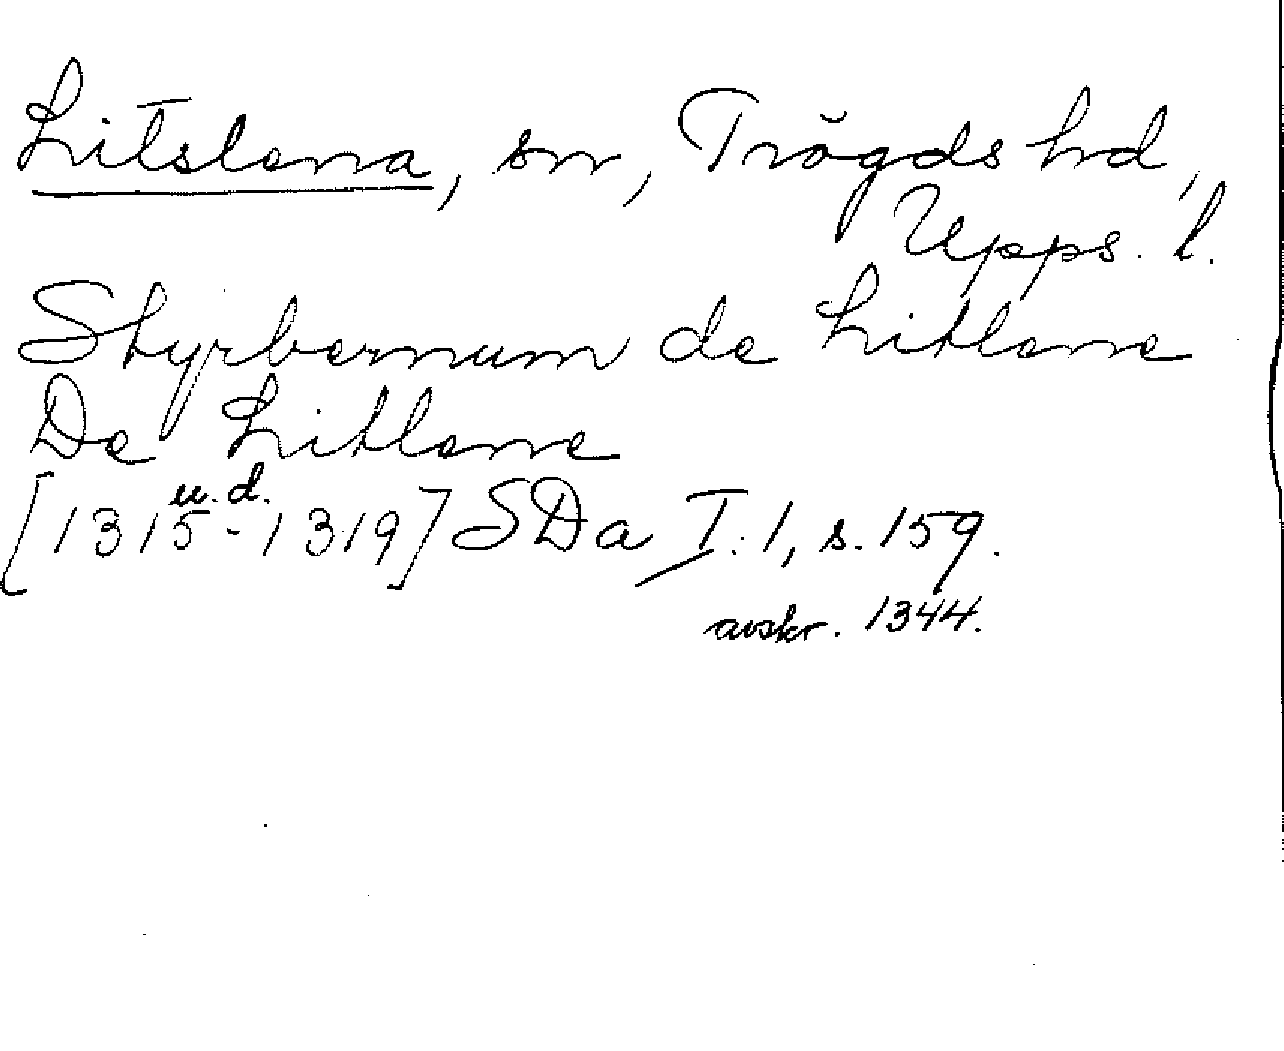 Litslena, sn, Trögds hd,
Upps. l.
Styrbernum de Litlene
De Litlene
u.d.
[1315-1319] SDa I:1, s. 159.
avskr. 1344.